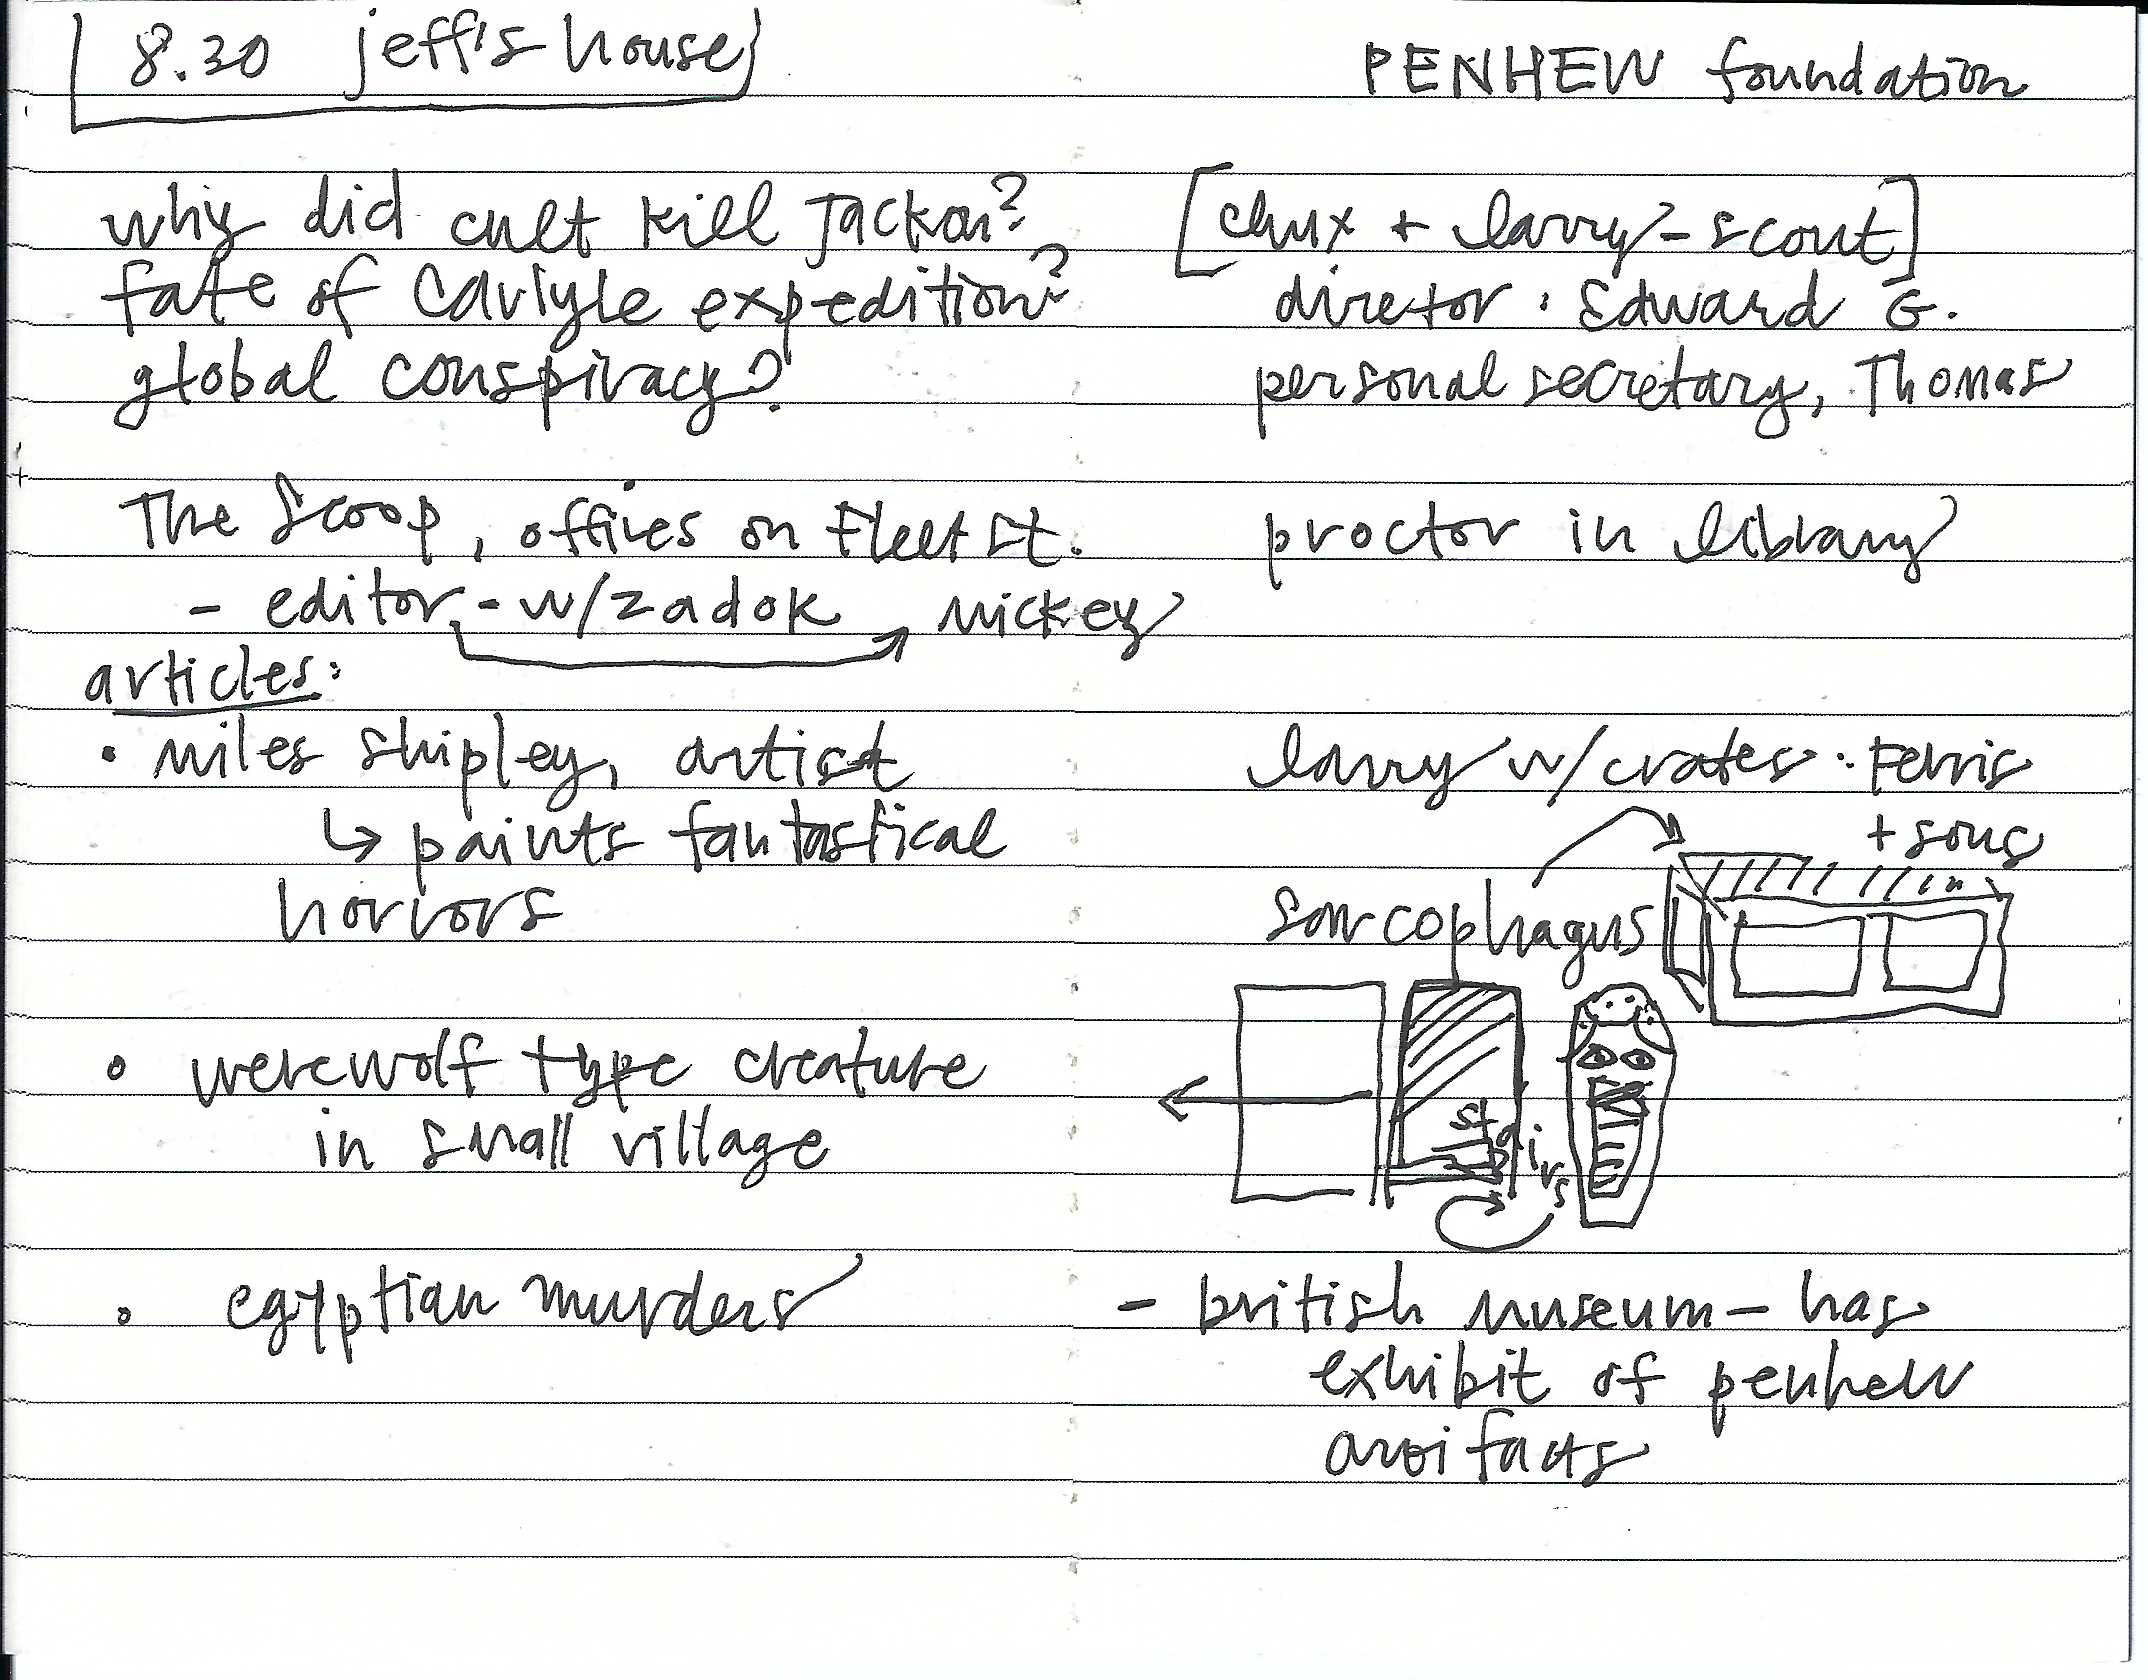 8.30 jeff's house
why did cult kill Jackon?
fate of Carlyle expedition?
global conspiracy?
The Scoop, offices on Fleet St.
- editor - w/zadok mickey
articles:
• miles shipley, artist
↳ paints fantastical
horrors
• werewolf type creature
in small village
• egyptian murders
PENHEW foundation
[chux + larry - scout]
director: Edward G.
personal secretary, Thomas
proctor in library
larry w/crates: Ferris
+ sons
sarcophagus
stairs
- british museum - has
exhibit of penhew
artifacts